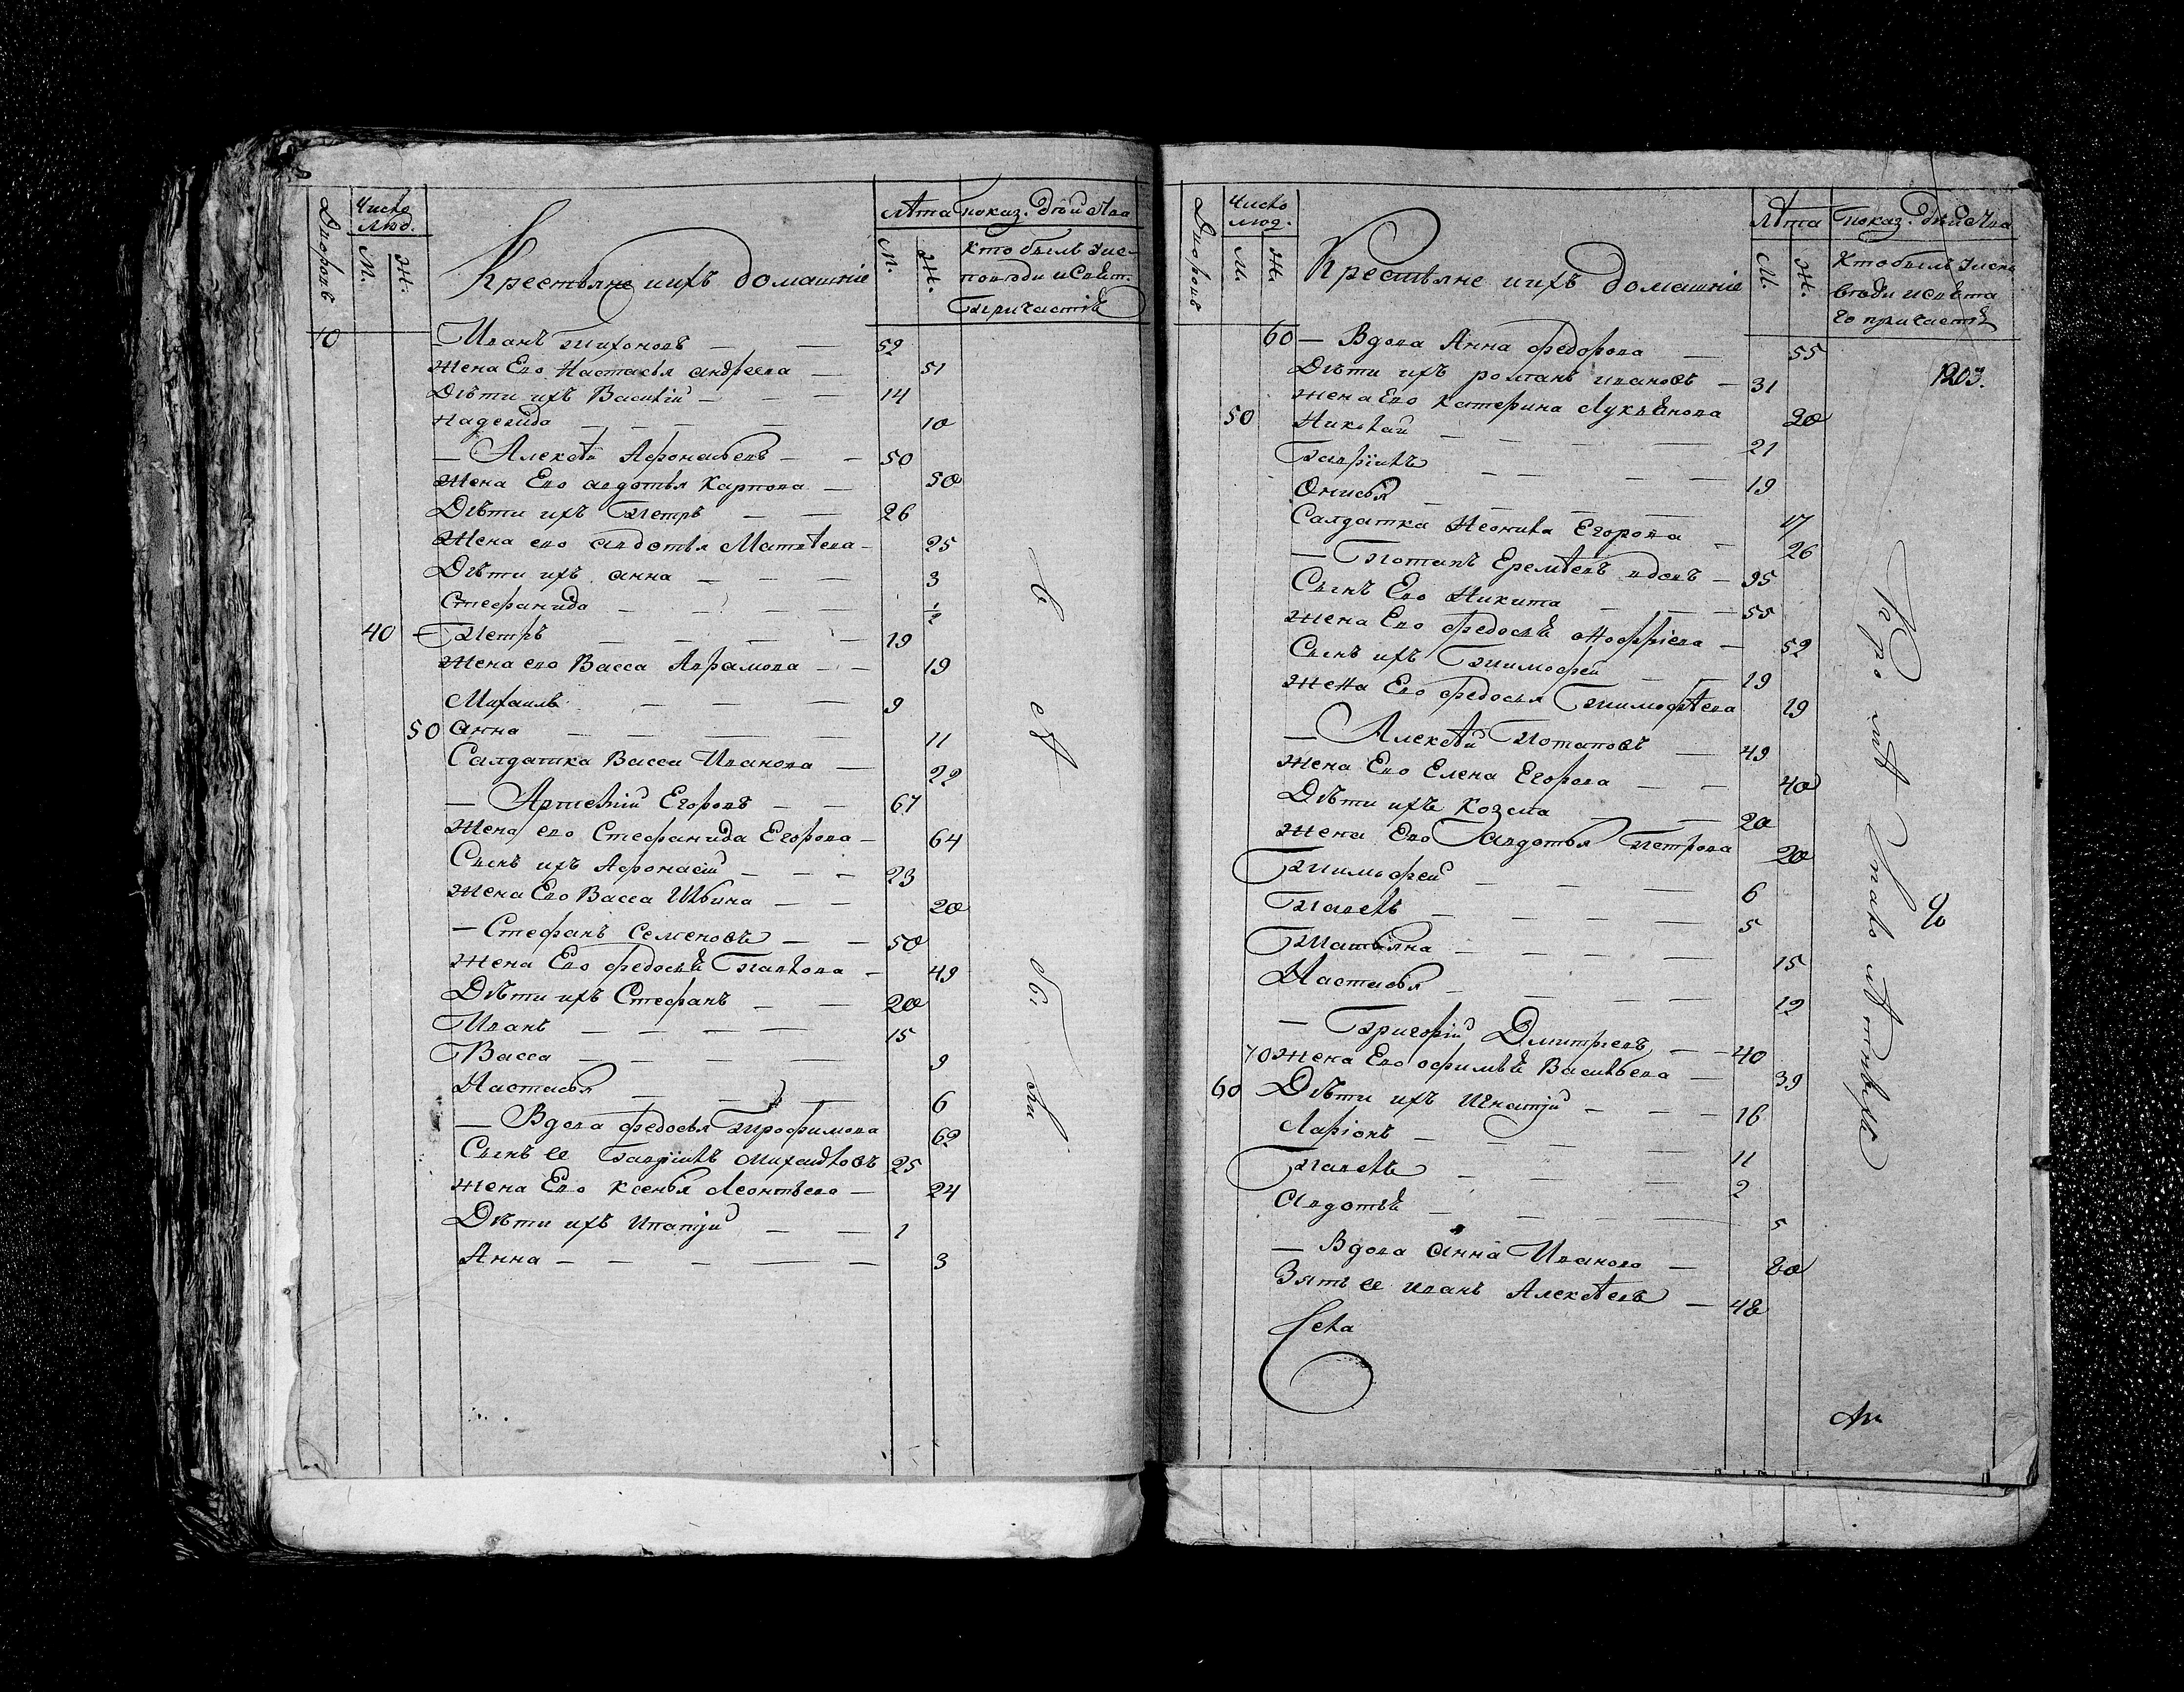 Дворовъ
Число
люд.
М.
Ж.
Крестьяне ихъ домашніе
лѣта
М.
Ж.
показ. действа
Кто былъ у ис-
поведи и Свят.
причастія
10
Иванъ тихоновъ — — 52
жена Ево Настасья андреева — 51
Дѣти ихъ Василій — — — 14
надежда — — — — 10
— Алексѣй Афонасьевъ — — 50
жена Ево авдотья Карпова — 50
Дѣти ихъ Петръ — — 26
жена ево авдотья Матвѣева — 25
Дѣти ихъ анна — — — 3
Стефанида — — — — 1/2
40 — Петръ — — — — 19
жена ево Васса Аврамова — — 19
Михаилъ — — — 9
50 анна — — — — 11
Салдатка Васса Иванова — 22
— Артемій Егоровъ — — 67
жена ево Стефанида Егорова — 64
Сынъ ихъ Афонасій — — — 23
жена Ево Васса Ильина — — 20
— Стефанъ Семеновъ — — 50
жена Ево федосья Павлова — 49
Дѣти ихъ Стефанъ — — 20
Иванъ — — — — 15
Васса — — — — 9
Настасья — — — — 6
— Вдова федосья Трофимова 62
Сынъ ее Гаврїилъ Михайловъ 25
жена Ево ксенья Леонтьева — 24
Дѣти ихъ Ипатій — — 1
Анна — — — — — 3
Дворовъ
Число
люд.
М.
Ж.
Крестьяне ихъ домашніе
лѣта
М.
Ж.
показ. действа
Кто былъ у испо
веди и свята
го причастія
1203.
60 — Вдова Анна федорова — 55
Дѣти ихъ романъ ивановъ — 31
жена Ево катерина Лукьянова 20
50 Николай — — — — 21
Гаврїилъ — — — 19
Онисья — — — — 17
Салдатка Неонила Егорова — 26
— Потапъ Еремѣевъ вдовъ — 95
Сынъ Ево Никита — — — 55
жена Ево федосья — 52
Сынъ ихъ Тимофей — — 19
жена Ево федосья Тимофѣева 19
— Алексѣй Потаповъ — 49
жена Ево Елена Егорова — — 40
Дѣти ихъ козма — — 20
жена Ево авдотья Петрова 20
Тимофей — — — — 6
Павелъ — — — — 5
Татьяна — — — — — 15
Настасья — — — — 12
— Григорій Дмитріевъ — — 40
70 жена Ево офимья Васильева — 39
60 Дѣти ихъ Игнатій — — — 16
Ларіонъ — — — — 11
Павелъ — — — — 2
авдотья — — — — 5
— Вдова анна Иванова — 80
Зять ее иванъ Алексѣевъ — 48
Села